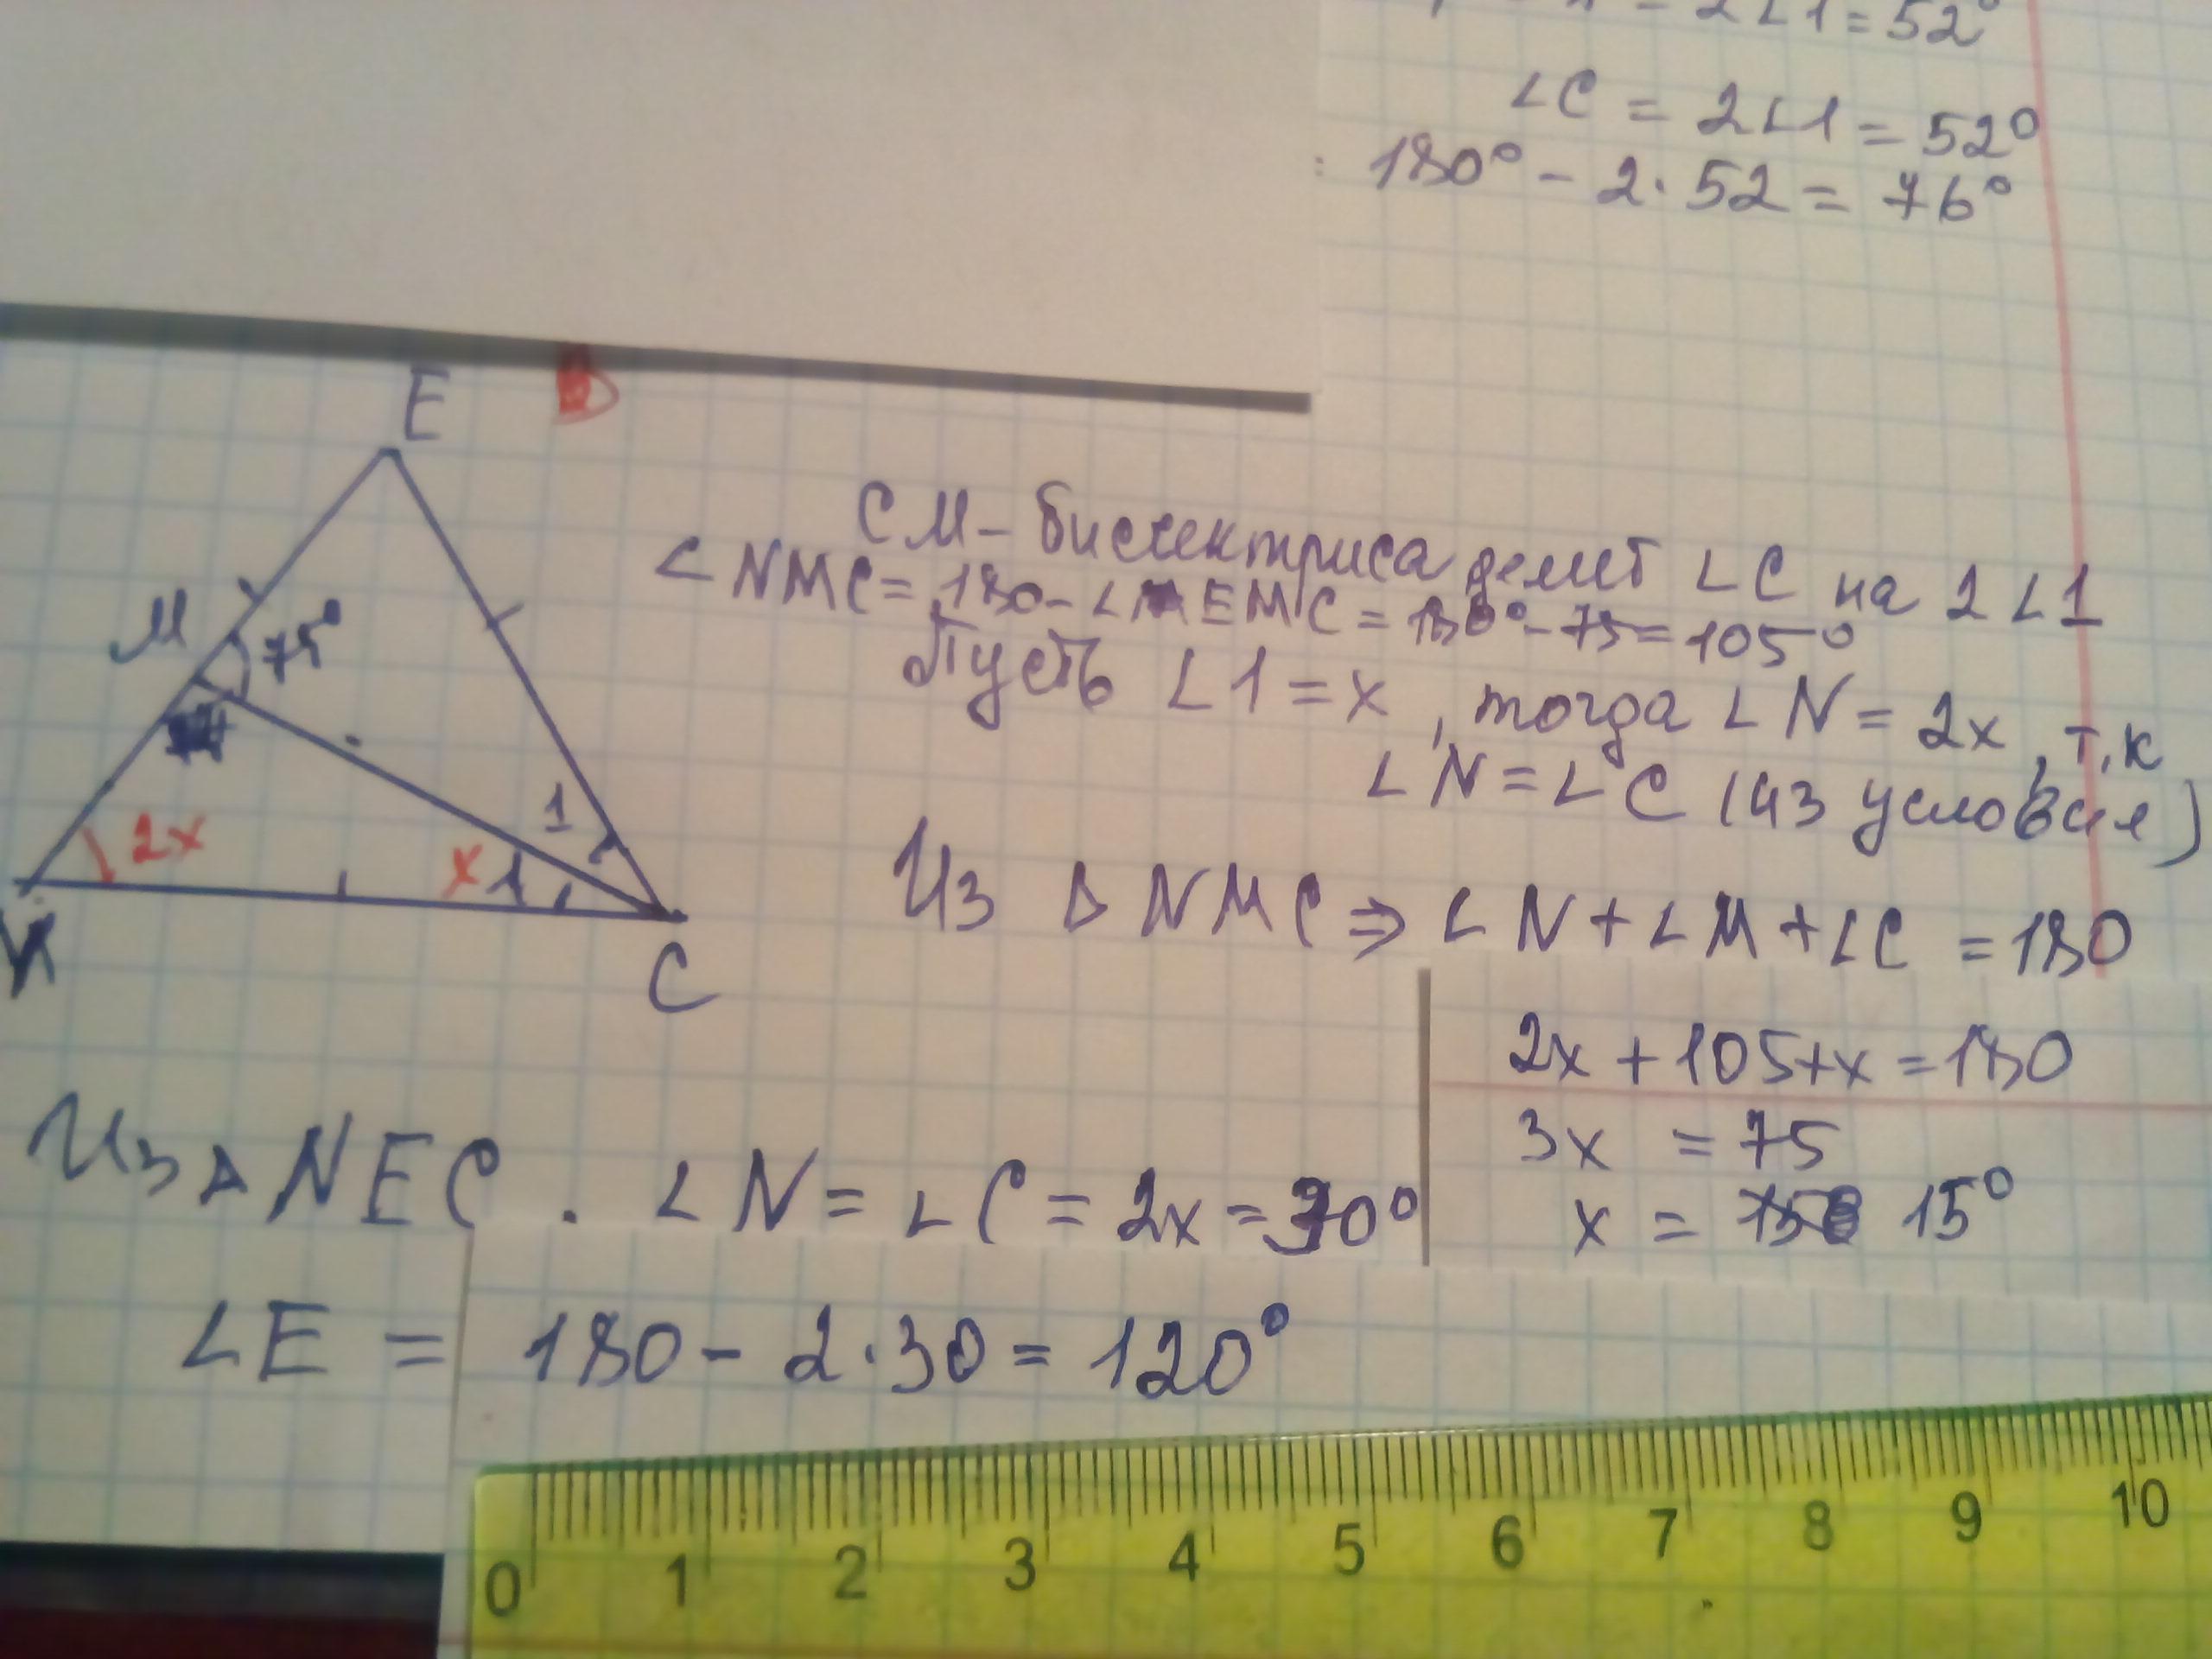 2∠1 = 52°
∠C = 2∠1 = 52°
180° - 2 · 52 = 76°
E
M
75°
1
2x
x 1
C
СМ - биссектриса делит ∠C на 2 ∠1
∠NMC = 180 - ∠EMC = 180° - 75 = 105°
Пусть ∠1 = x, тогда ∠N = 2x, т.к
∠N = ∠C (из условия)
Из Δ NMC ⇒ ∠N + ∠M + ∠C = 180
2x + 105 + x = 180
3x = 75
x = 15°
Из Δ NEC . ∠N = ∠C = 2x = 30°
∠E = 180 - 2 · 30 = 120°
0 1 2 3 4 5 6 7 8 9 10